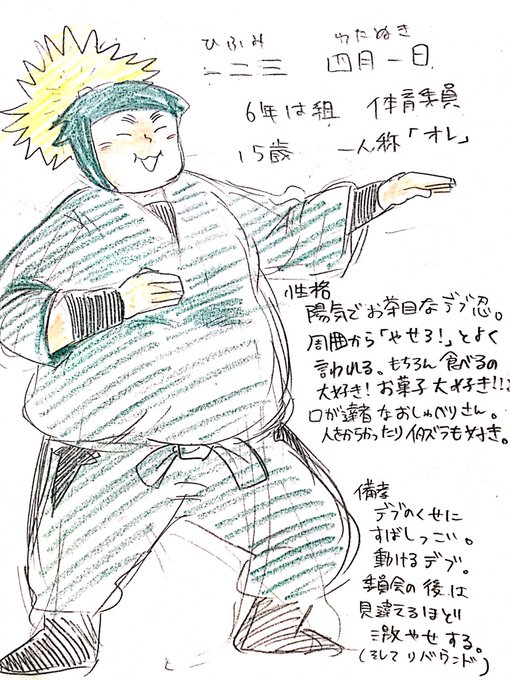 ひふみ わたぬき
一二三 四月一日
6年は組 体育委員
15歳 一人称「オレ」
性格
陽気でお茶目なデブ忍。
周囲から「やせろ!」とよく
言われる。もちろん食べるの
大好き!お菓子大好き!!!
口が達者なおしゃべりさん。
人をからかったりイタズラも好き。
備考
デブのくせに
すばしっこい。
動けるデブ。
委員会の後は
見違えるほどに
激やせする。
(そしてリバウンド)